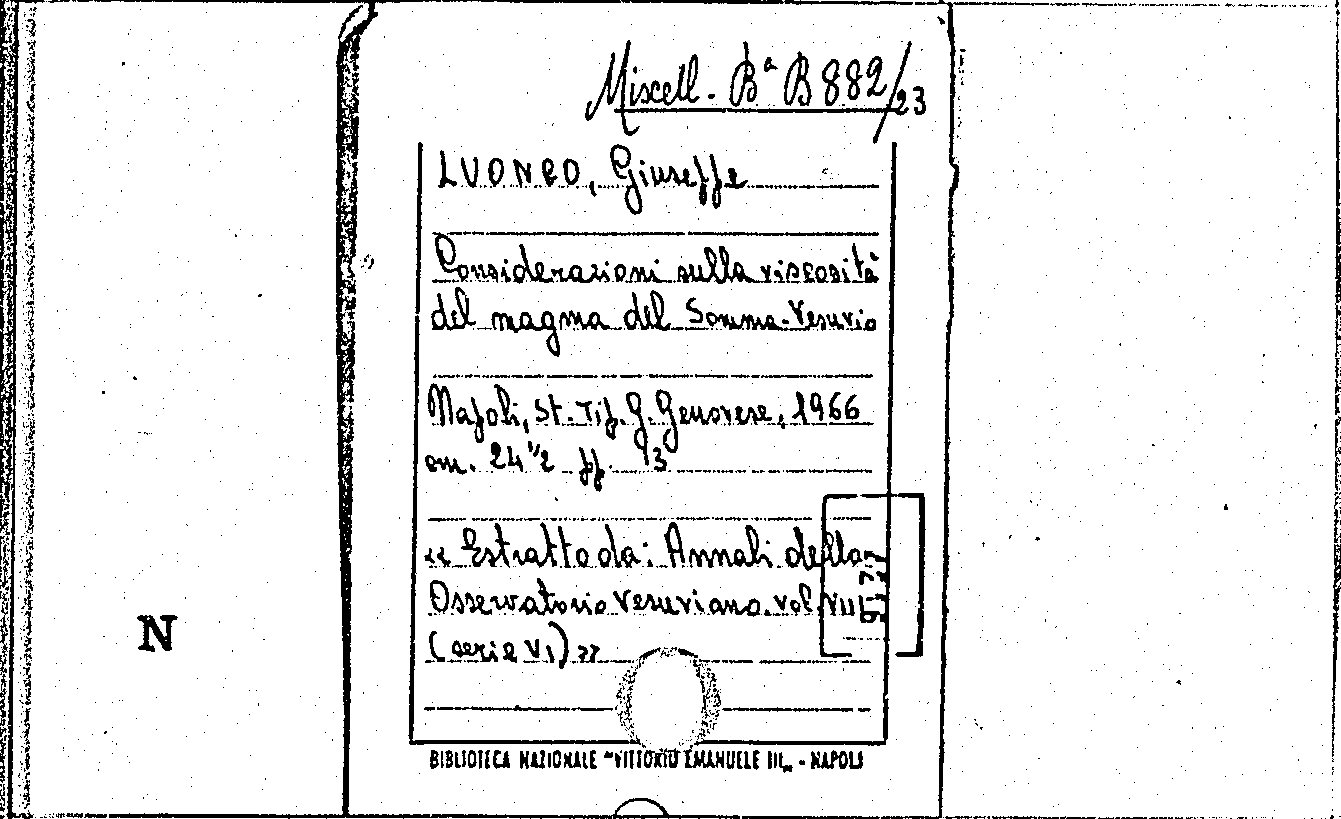 Miscell. Bª B 882/23
LUONGO, Giuseppe
Considerazioni sulla viscosità
del magma del Somma-Vesuvio
Napoli, St. Tip. G. Genovese, 1966
cm. 24 1/2 pp. 13
« Estratto da: Annali dello
Osservatorio Vesuviano. vol. VIII
(serie VI) »
N
BIBLIOTECA NAZIONALE "VITTORIO EMANUELE III„ - NAPOLI